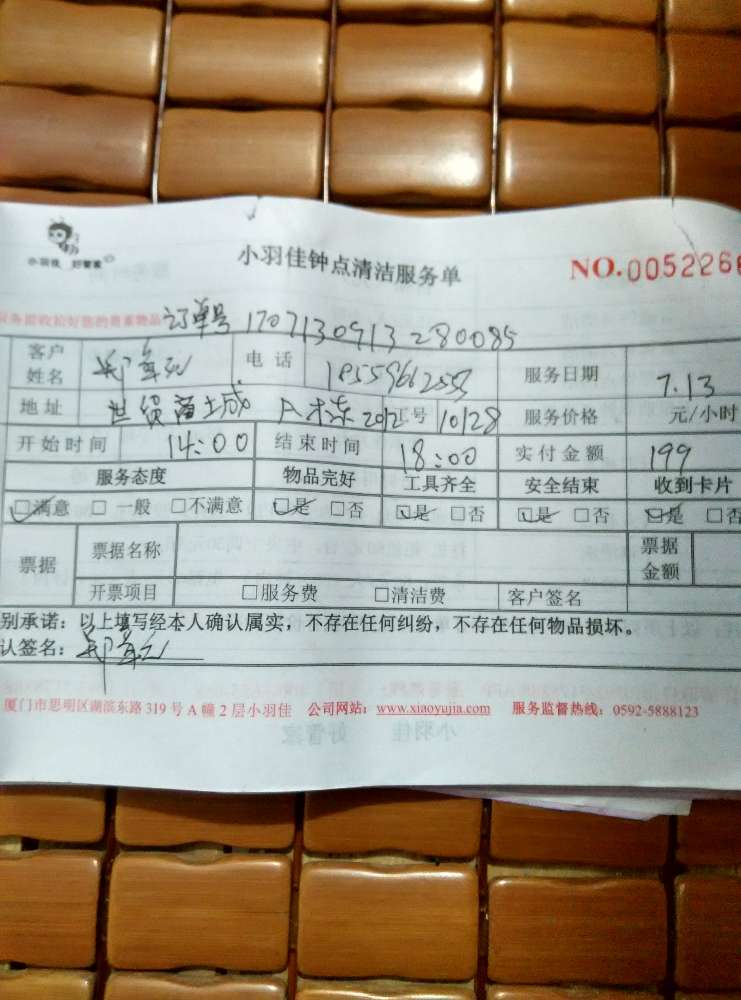 小羽佳 好管家
小羽佳钟点清洁服务单
NO.005226
服务前收拾好您的贵重物品 订单号 1707130913280085
客户姓名 电话 服务日期 7.13
地址 世贸商城 A栋2012 工号 10128 服务价格 元/小时
开始时间 14:00 结束时间 18:00 实付金额 199
服务态度 物品完好 工具齐全 安全结束 收到卡片
☑满意 □一般 □不满意 ☑是 □否 ☑是 □否 ☑是 □否 ☑是 □否
票据 票据名称 票据金额
开票项目 □服务费 □清洁费 客户签名
别承诺：以上填写经本人确认属实，不存在任何纠纷，不存在任何物品损坏。
认签名：
厦门市思明区湖滨东路319号A幢2层小羽佳 公司网站：www.xiaoyujia.com 服务监督热线：0592-5888123